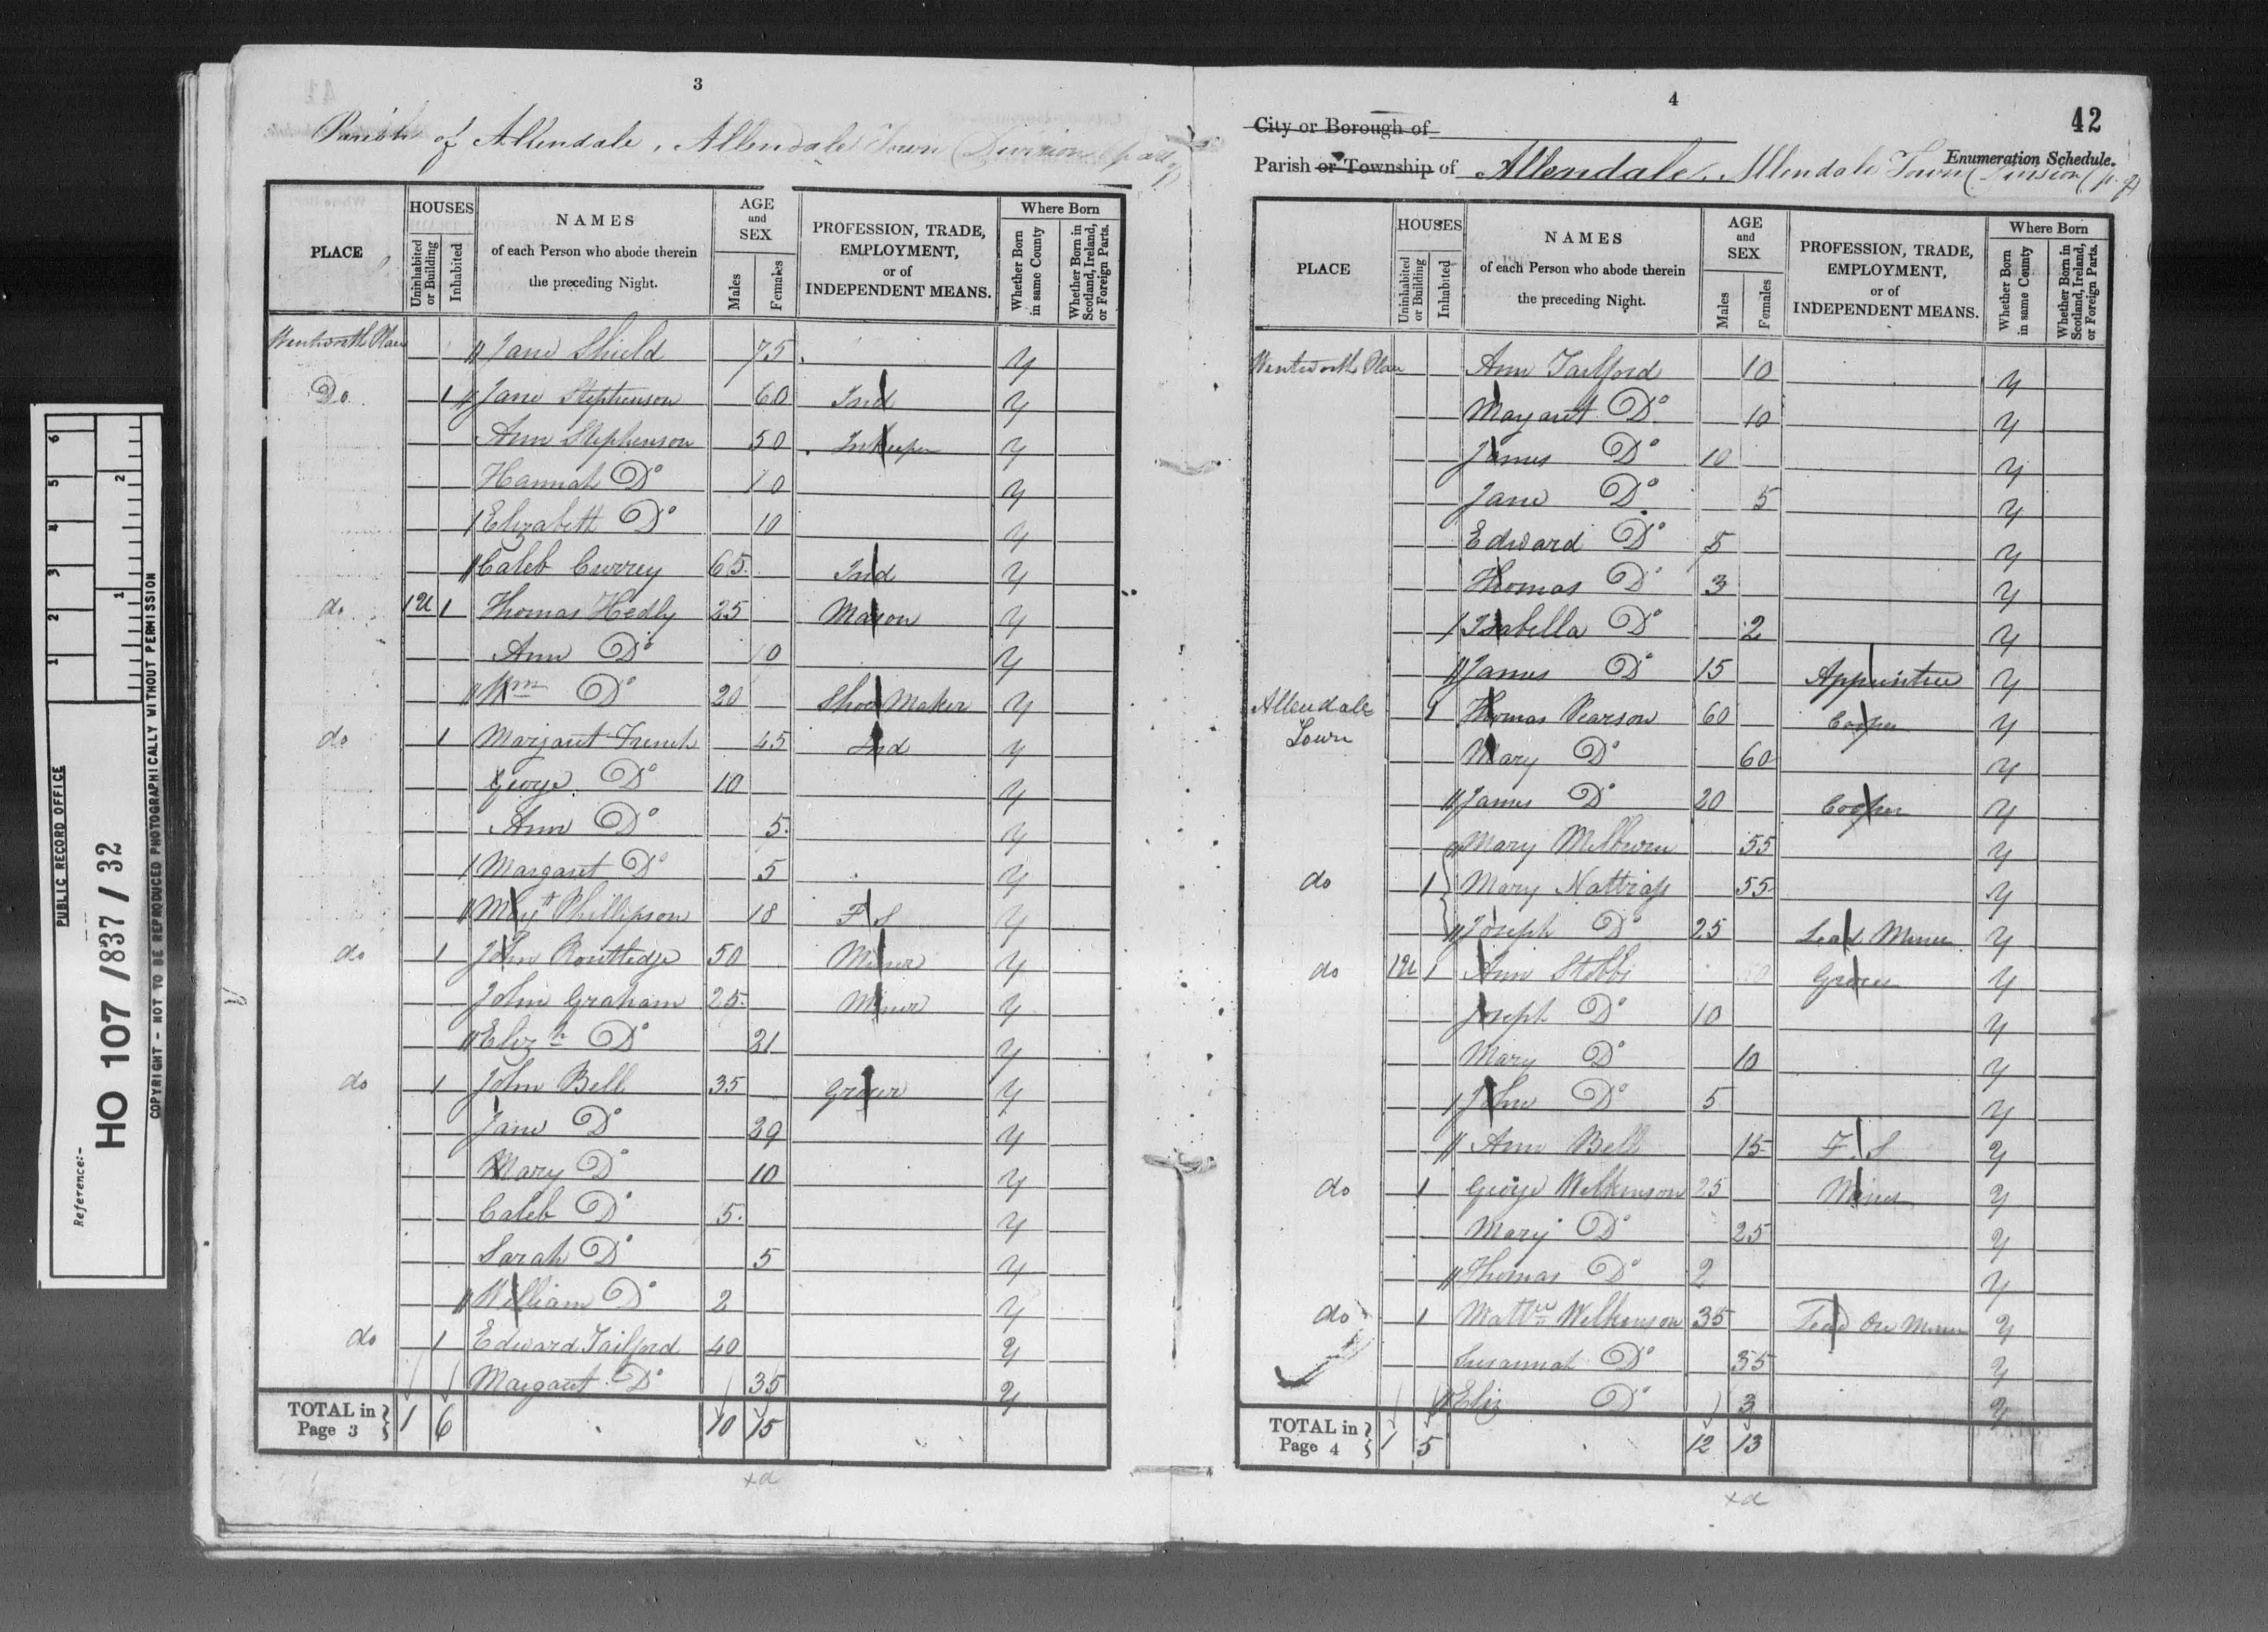 3
Parish of Allendale, Allendale Town Division
PLACE
HOUSES
Uninhabited or Building
Inhabited
NAMES
of each Person who abode therein
the preceding Night.
AGE and SEX
Males
Females
PROFESSION, TRADE,
EMPLOYMENT,
or of
INDEPENDENT MEANS.
Where Born
Whether Born in same County
Whether Born in Scotland, Ireland, or Foreign Parts.
Wentworth Place // Jane Shield 75 y
Do 1 // Jane Stephenson 60 Ind y
Ann Stephenson 50 Inkeeper y
Hannah Do 10 y
/ Elizabeth Do 10 y
// Caleb Currey 65 Ind y
do 1U 1 Thomas Hedly 25 Mason y
Ann Do y
// Wm Do 20 Shoe Maker y
do 1 Margaret French 45 Ind y
George Do 10 y
Ann Do 5 y
/ Margaret Do 5 y
// Mgt Phillipson 18 F S y
do 1 John Routledge 50 Miner y
John Graham 25 Miner y
// Elizh Do 21 y
do 1 John Bell 35 Grocer y
Jane Do 29 y
Mary Do 10 y
Caleb Do 5 y
Sarah Do 5 y
// William Do 2 y
do 1 Edward Tailford 40 y
Margaret Do 35 y
TOTAL in Page 3 } 1 6 10 15
xd
4
42
City or Borough of
Enumeration Schedule.
Parish or Township of Allendale, Allendale Town Division
PLACE
HOUSES
Uninhabited or Building
Inhabited
NAMES
of each Person who abode therein
the preceding Night.
AGE and SEX
Males
Females
PROFESSION, TRADE,
EMPLOYMENT,
or of
INDEPENDENT MEANS.
Where Born
Whether Born in same County
Whether Born in Scotland, Ireland, or Foreign Parts.
Wentworth Place Ann Tailford 10 y
Margaret Do 10 y
James Do 10 y
Jane Do 5 y
Edward Do 5 y
Thomas Do 3 y
/ Isabella Do 2 y
// James Do 15 Apprintice y
Allendale Town 1 Thomas Pearson 60 Cooper y
Mary Do 60 y
// James Do 20 Cooper y
Mary Milburn 55 y
do 1 Mary Nattrass 55 y
// Joseph Do 25 Lead Miner y
do 1U 1 Ann Stobbs Grocer y
Joseph Do 10 y
Mary Do 10 y
/ John Do 5 y
// Ann Bell 15 F. S y
do 1 George Wilkinson 25 Miner y
Mary Do 25 y
// Thomas Do 2 y
do 1 Mattw Wilkinson 35 Lead Ore Miner y
Susannah Do 35 y
// Eliz Do 3 y
TOTAL in Page 4 } 1 5 12 13
xd
Reference:-
PUBLIC RECORD OFFICE
HO 107 / 837 / 32
COPYRIGHT - NOT TO BE REPRODUCED PHOTOGRAPHICALLY WITHOUT PERMISSION
1 2 3 4 5 6
1 2